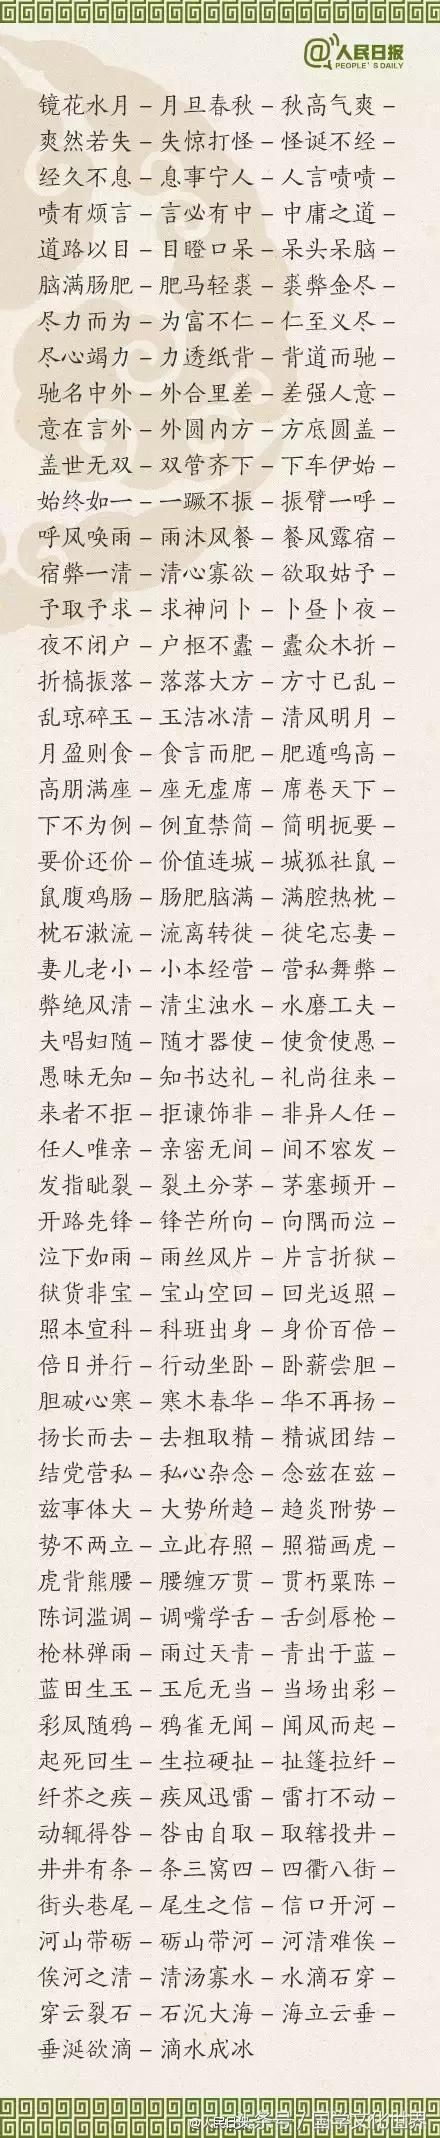 @人民日报
PEOPLE'S DAILY
镜花水月–月旦春秋–秋高气爽–
爽然若失–失惊打怪–怪诞不经–
经久不息–息事宁人–人言啧啧–
啧有烦言–言必有中–中庸之道–
道路以目–目瞪口呆–呆头呆脑–
脑满肠肥–肥马轻裘–裘弊金尽–
尽力而为–为富不仁–仁至义尽–
尽心竭力–力透纸背–背道而驰–
驰名中外–外合里差–差强人意–
意在言外–外圆内方–方底圆盖–
盖世无双–双管齐下–下车伊始–
始终如一–一蹶不振–振臂一呼–
呼风唤雨–雨沐风餐–餐风露宿–
宿弊一清–清心寡欲–欲取姑予–
予取予求–求神问卜–卜昼卜夜–
夜不闭户–户枢不蠹–蠹众木折–
折槁振落–落落大方–方寸已乱–
乱琼碎玉–玉洁冰清–清风明月–
月盈则食–食言而肥–肥遁鸣高–
高朋满座–座无虚席–席卷天下–
下不为例–例直禁简–简明扼要–
要价还价–价值连城–城狐社鼠–
鼠腹鸡肠–肠肥脑满–满腔热枕–
枕石漱流–流离转徙–徙宅忘妻–
妻儿老小–小本经营–营私舞弊–
弊绝风清–清尘浊水–水磨工夫–
夫唱妇随–随才器使–使贪使愚–
愚昧无知–知书达礼–礼尚往来–
来者不拒–拒谏饰非–非异人任–
任人唯亲–亲密无间–间不容发–
发指眦裂–裂土分茅–茅塞顿开–
开路先锋–锋芒所向–向隅而泣–
泣下如雨–雨丝风片–片言折狱–
狱货非宝–宝山空回–回光返照–
照本宣科–科班出身–身价百倍–
倍日并行–行动坐卧–卧薪尝胆–
胆破心寒–寒木春华–华不再扬–
扬长而去–去粗取精–精诚团结–
结党营私–私心杂念–念兹在兹–
兹事体大–大势所趋–趋炎附势–
势不两立–立此存照–照猫画虎–
虎背熊腰–腰缠万贯–贯朽粟陈–
陈词滥调–调嘴学舌–舌剑唇枪–
枪林弹雨–雨过天青–青出于蓝–
蓝田生玉–玉卮无当–当场出彩–
彩凤随鸦–鸦雀无闻–闻风而起–
起死回生–生拉硬扯–扯篷拉纤–
纤芥之疾–疾风迅雷–雷打不动–
动辄得咎–咎由自取–取辖投井–
井井有条–条三窝四–四衢八街–
街头巷尾–尾生之信–信口开河–
河山带砺–砺山带河–河清难俟–
俟河之清–清汤寡水–水滴石穿–
穿云裂石–石沉大海–海立云垂–
垂涎欲滴–滴水成冰
@人民日报
头条号 / 国学文化世界